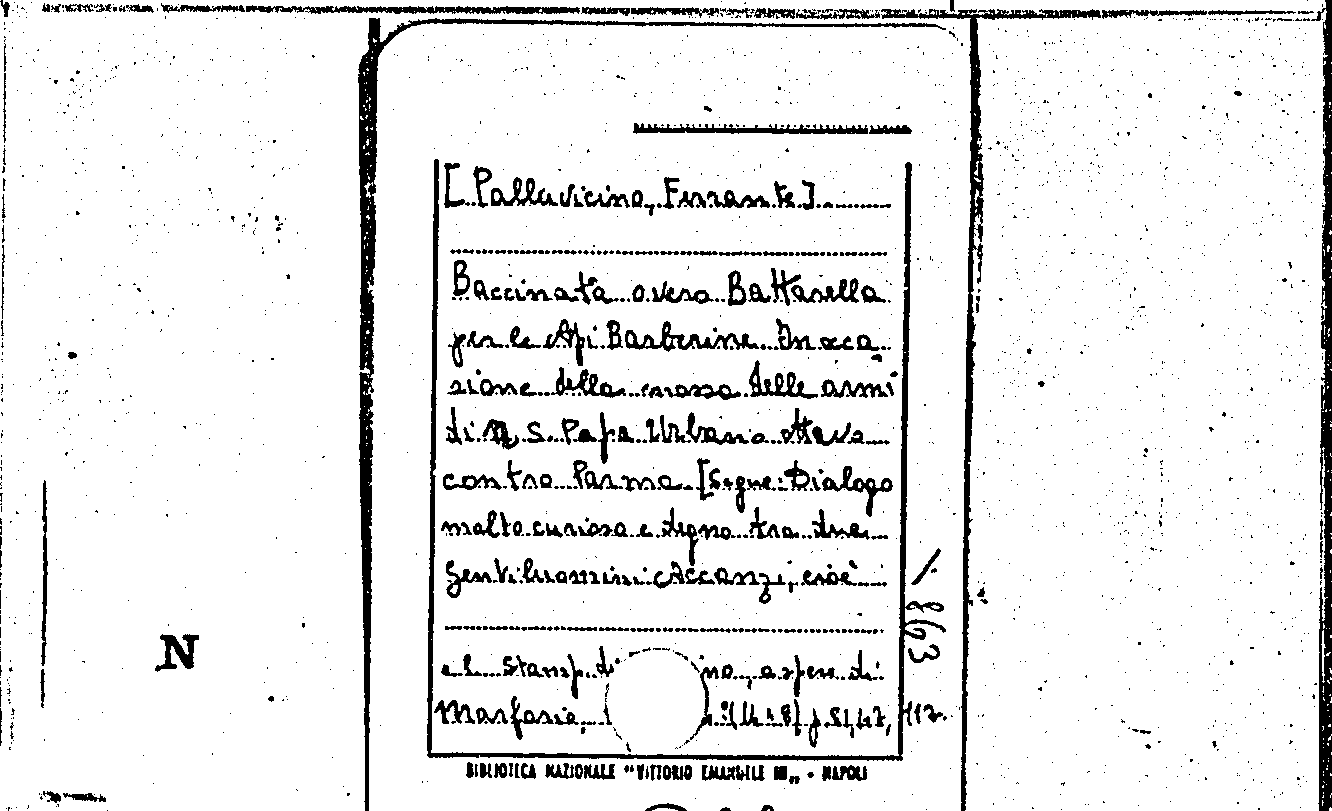 [Pallavicino, Ferrante]
Baccinata overo Battarella
per le Api Barberine. In occa
sione della mossa delle armi
di N. S. Papa Urbano Ottavo
contro Parma [Segue: Dialogo
molto curioso e degno tra due
Gentiluomini Accanzi, cioè
/.
863
nel Stamp. di a spese di
Marforio, p. 81, 47, 112.
BIBLIOTECA NAZIONALE "VITTORIO EMANUELE III„ - NAPOLI
N